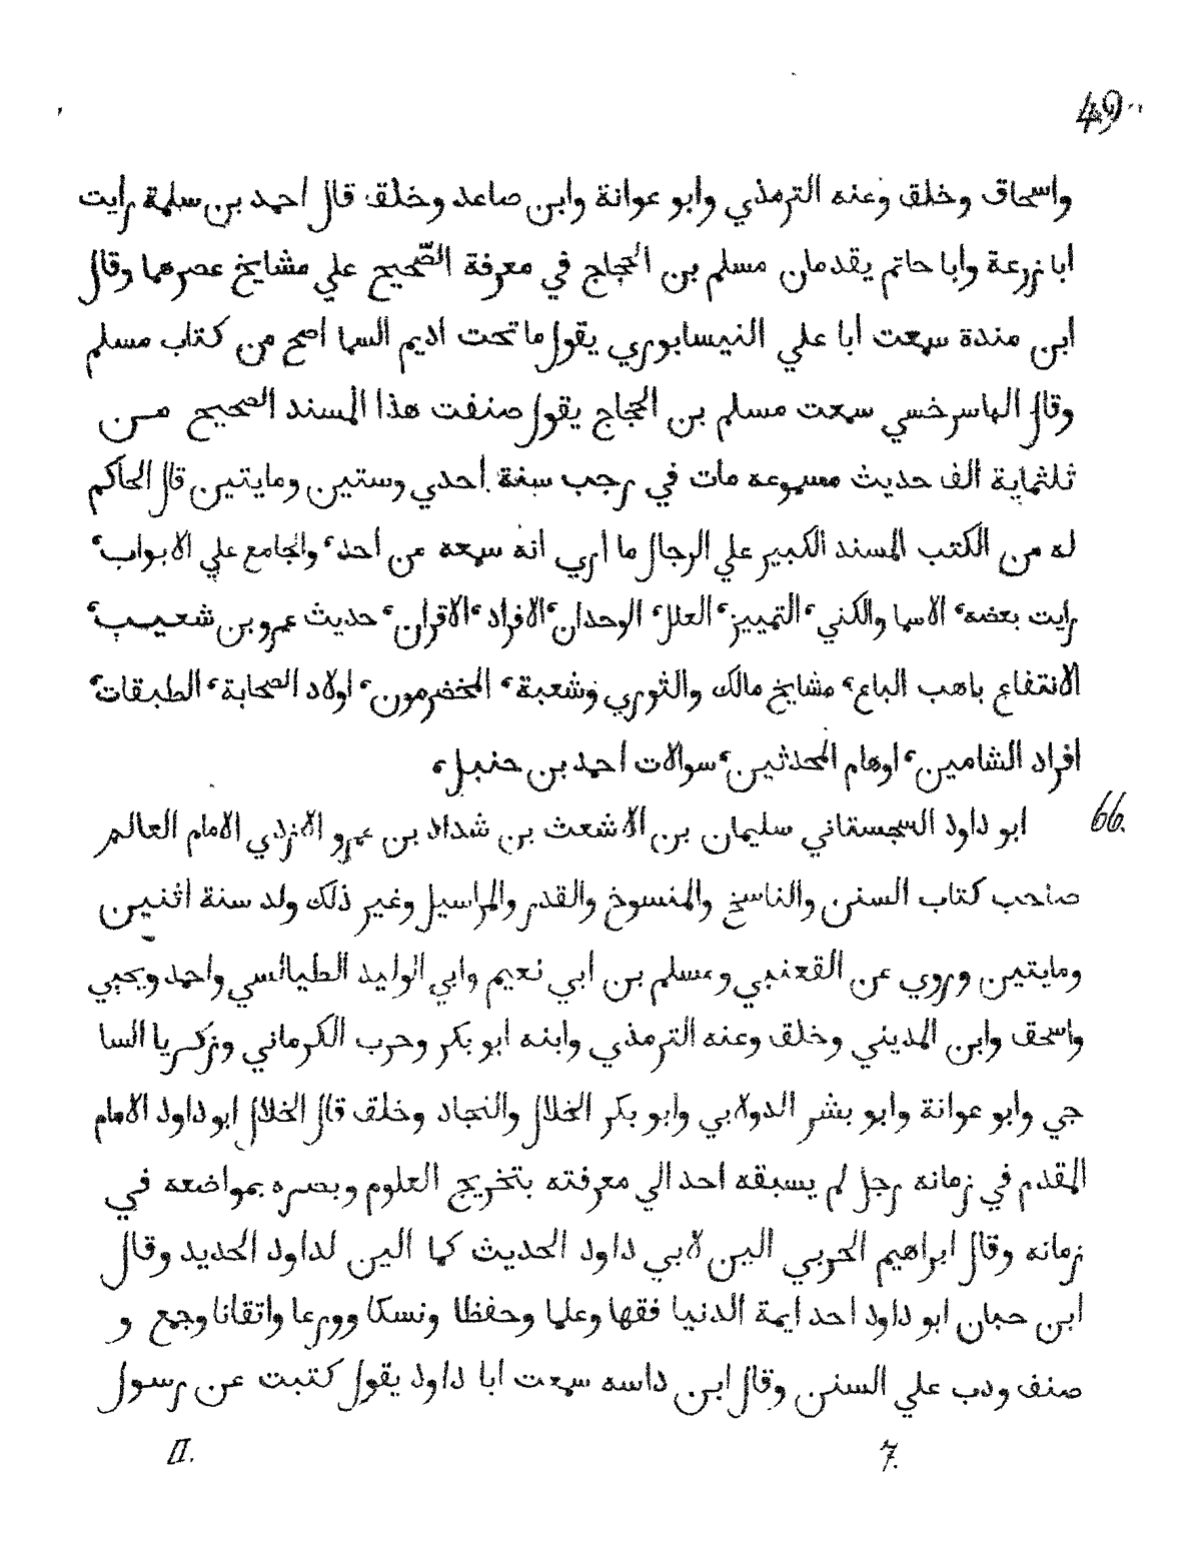 49
واسحاق وخلق وعنه الترمذي وابو عوانة وابن صاعد وخلق قال احمد بن سلمة رايت
ابا زرعة وابا حاتم يقدمان مسلم بن الحجاج في معرفة الصّحيح علي مشايخ عصرهما وقال
ابن مندة سمعت أبا علي النيسابوري يقول ما تحت اديم السما اصح من كتاب مسلم
وقال الماسرخسي سمعت مسلم بن الحجاج يقول صنفت هذا المسند الصحيح من
ثلثماية الف حديث مسموعه مات في رجب سنة أحدي وستين ومايتين قال الحاكم
له من الكتب المسند الكبير علي الرجال ما أري أنه سمعه من أحد، والجامع علي الابواب،
رايت بعضه، الاسما والكني، التمييز، العلل، الوحدان، الافراد، الاقران، حديث عمرو بن شعيب،
الانتفاع باهب الباع، مشايخ مالك والثوري وشعبة، المخضرمون، اولاد الصحابة، الطبقات،
افراد الشامين، اوهام المحدثين، سوالات أحمد بن حنبل،
66. ابو داود السجستاني سليمان بن الاشعث بن شداد بن عمرو الازدي الامام العالم
صاحب كتاب السنن والناسخ والمنسوخ والقدر والمراسيل وغير ذلك ولد سنة اثنين
ومايتين وروي عن القعنبي ومسلم بن أبي نعيم وابي الوليد الطيالسي واحمد ويحيي
واسحق وابن المديني وخلق وعنه الترمذي وابنه ابو بكر وحرب الكرماني وزكريا السا
جي وابو عوانة وابو بشر الدولابي وابو بكر الخلال والنجاد وخلق قال الخلال ابو داود الامام
المقدم في زمانه رجل لم يسبقه احد الي معرفته بتخريج العلوم وبصره بمواضعه في
زمانه وقال ابراهيم الحربي الين لابي داود الحديث كما الين لداود الحديد وقال
ابن حبان ابو داود احد ايمة الدنيا فقها وعلما وحفظا ونسكا وورعا واتقانا وجمع و
صنف ودب علي السنن وقال ابن داسه سمعت ابا داود يقول كتبت عن رسول
II. 7.